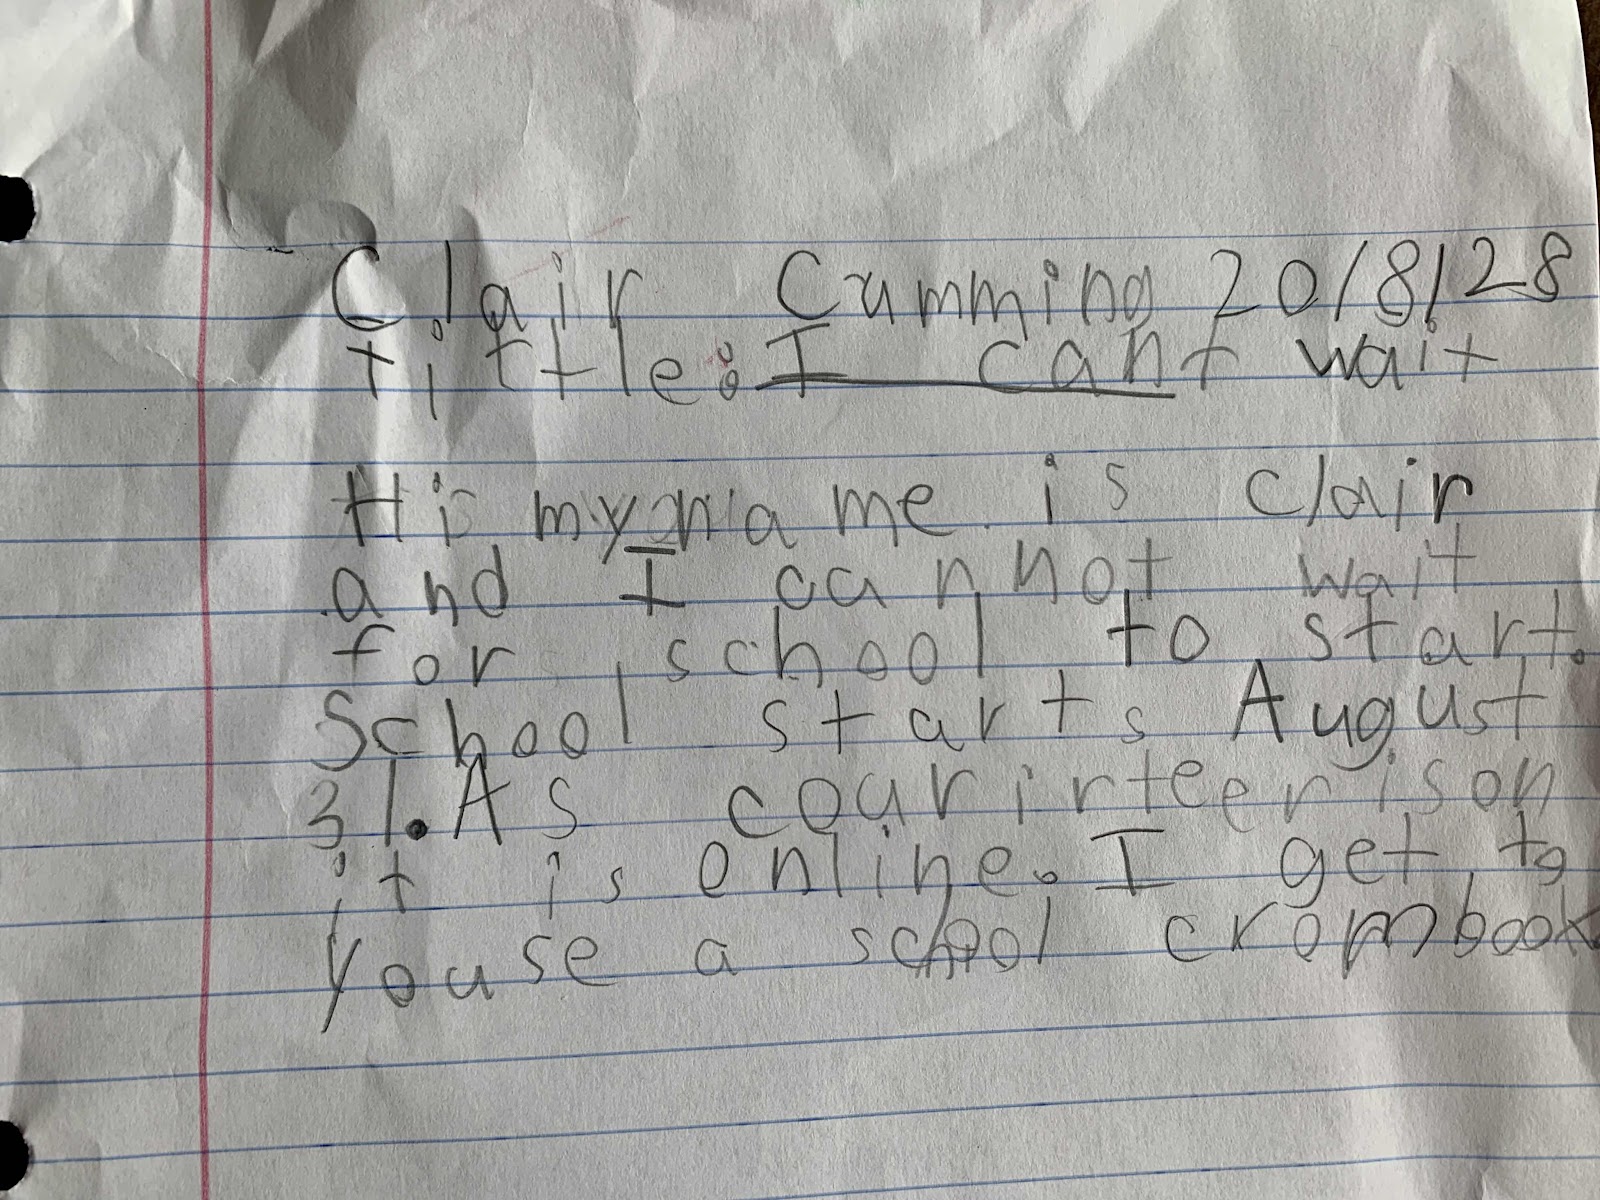 Clair Cumming 20/8/28
tittle: I cant wait
Hi my name is clair
and I cannot wait
for school to start.
School starts August
31. As courirteer is on
it is online. I get to
youse a school crombook